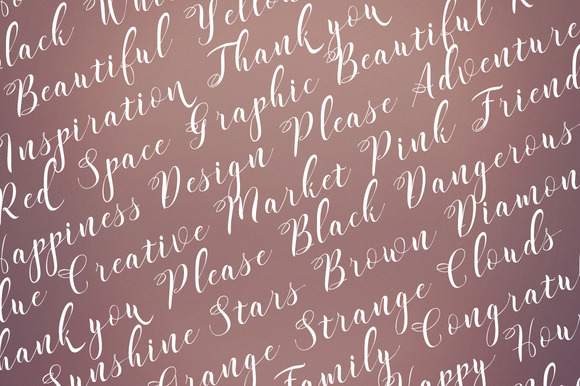 lack Whi
Beautiful Yello
Inspiration Thank you
Red Space Graphic Beautiful
Happiness Design Please Adventure
lue Creative Market Pink Friend
Thank you Please Black Dangerous
Sunshine Stars Brown Diamon
Orange Strange Clouds
Family Congratu
Happy Hou